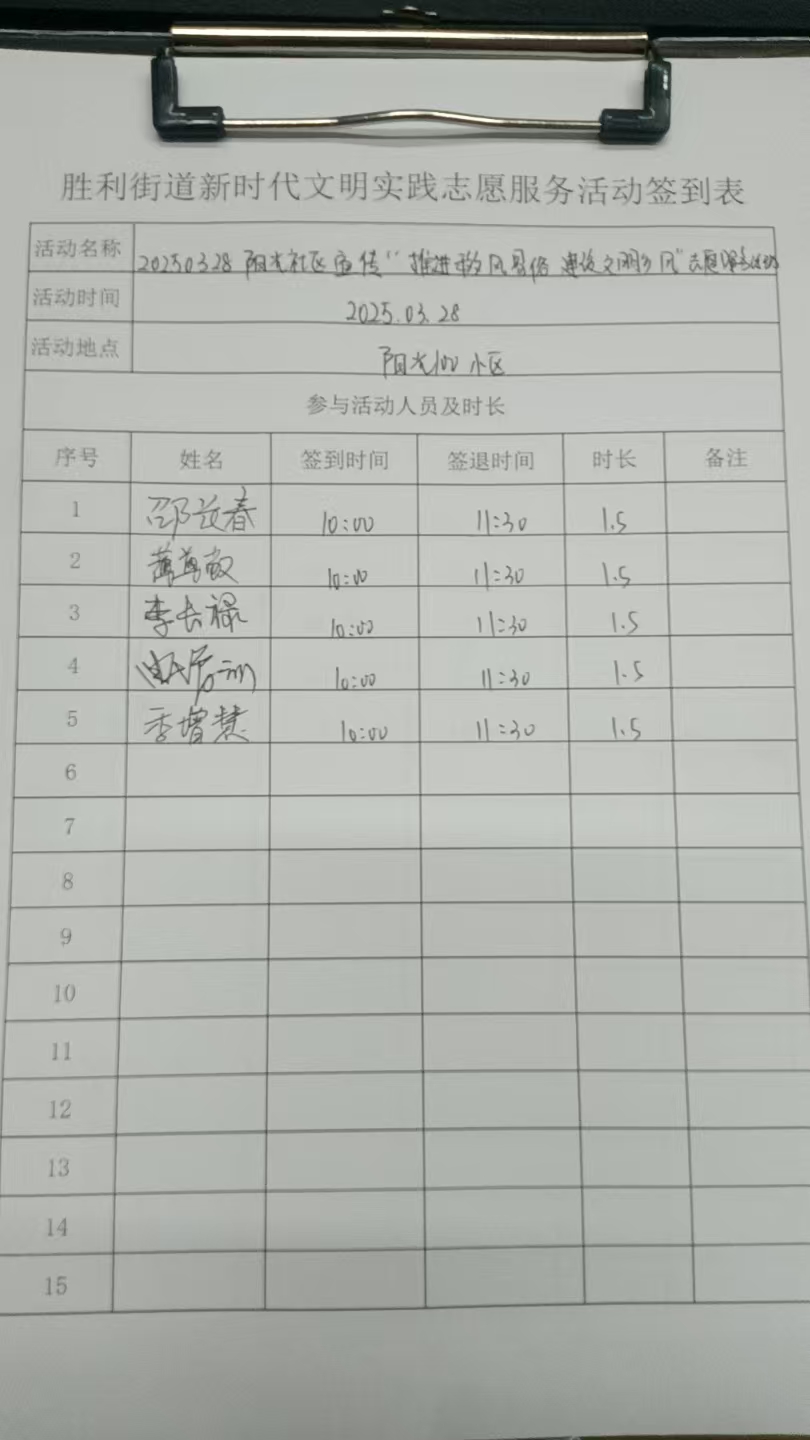 胜利街道新时代文明实践志愿服务活动签到表
活动名称 20250328 阳光社区宣传“推进移风易俗 建设文明乡风”志愿服务活动
活动时间 2025.03.28
活动地点 阳光100小区
参与活动人员及时长
序号 姓名 签到时间 签退时间 时长 备注
1 邵长春 10:00 11:30 1.5
2 10:00 11:30 1.5
3 李长禄 10:00 11:30 1.5
4 10:00 11:30 1.5
5 季增慧 10:00 11:30 1.5
6
7
8
9
10
11
12
13
14
15